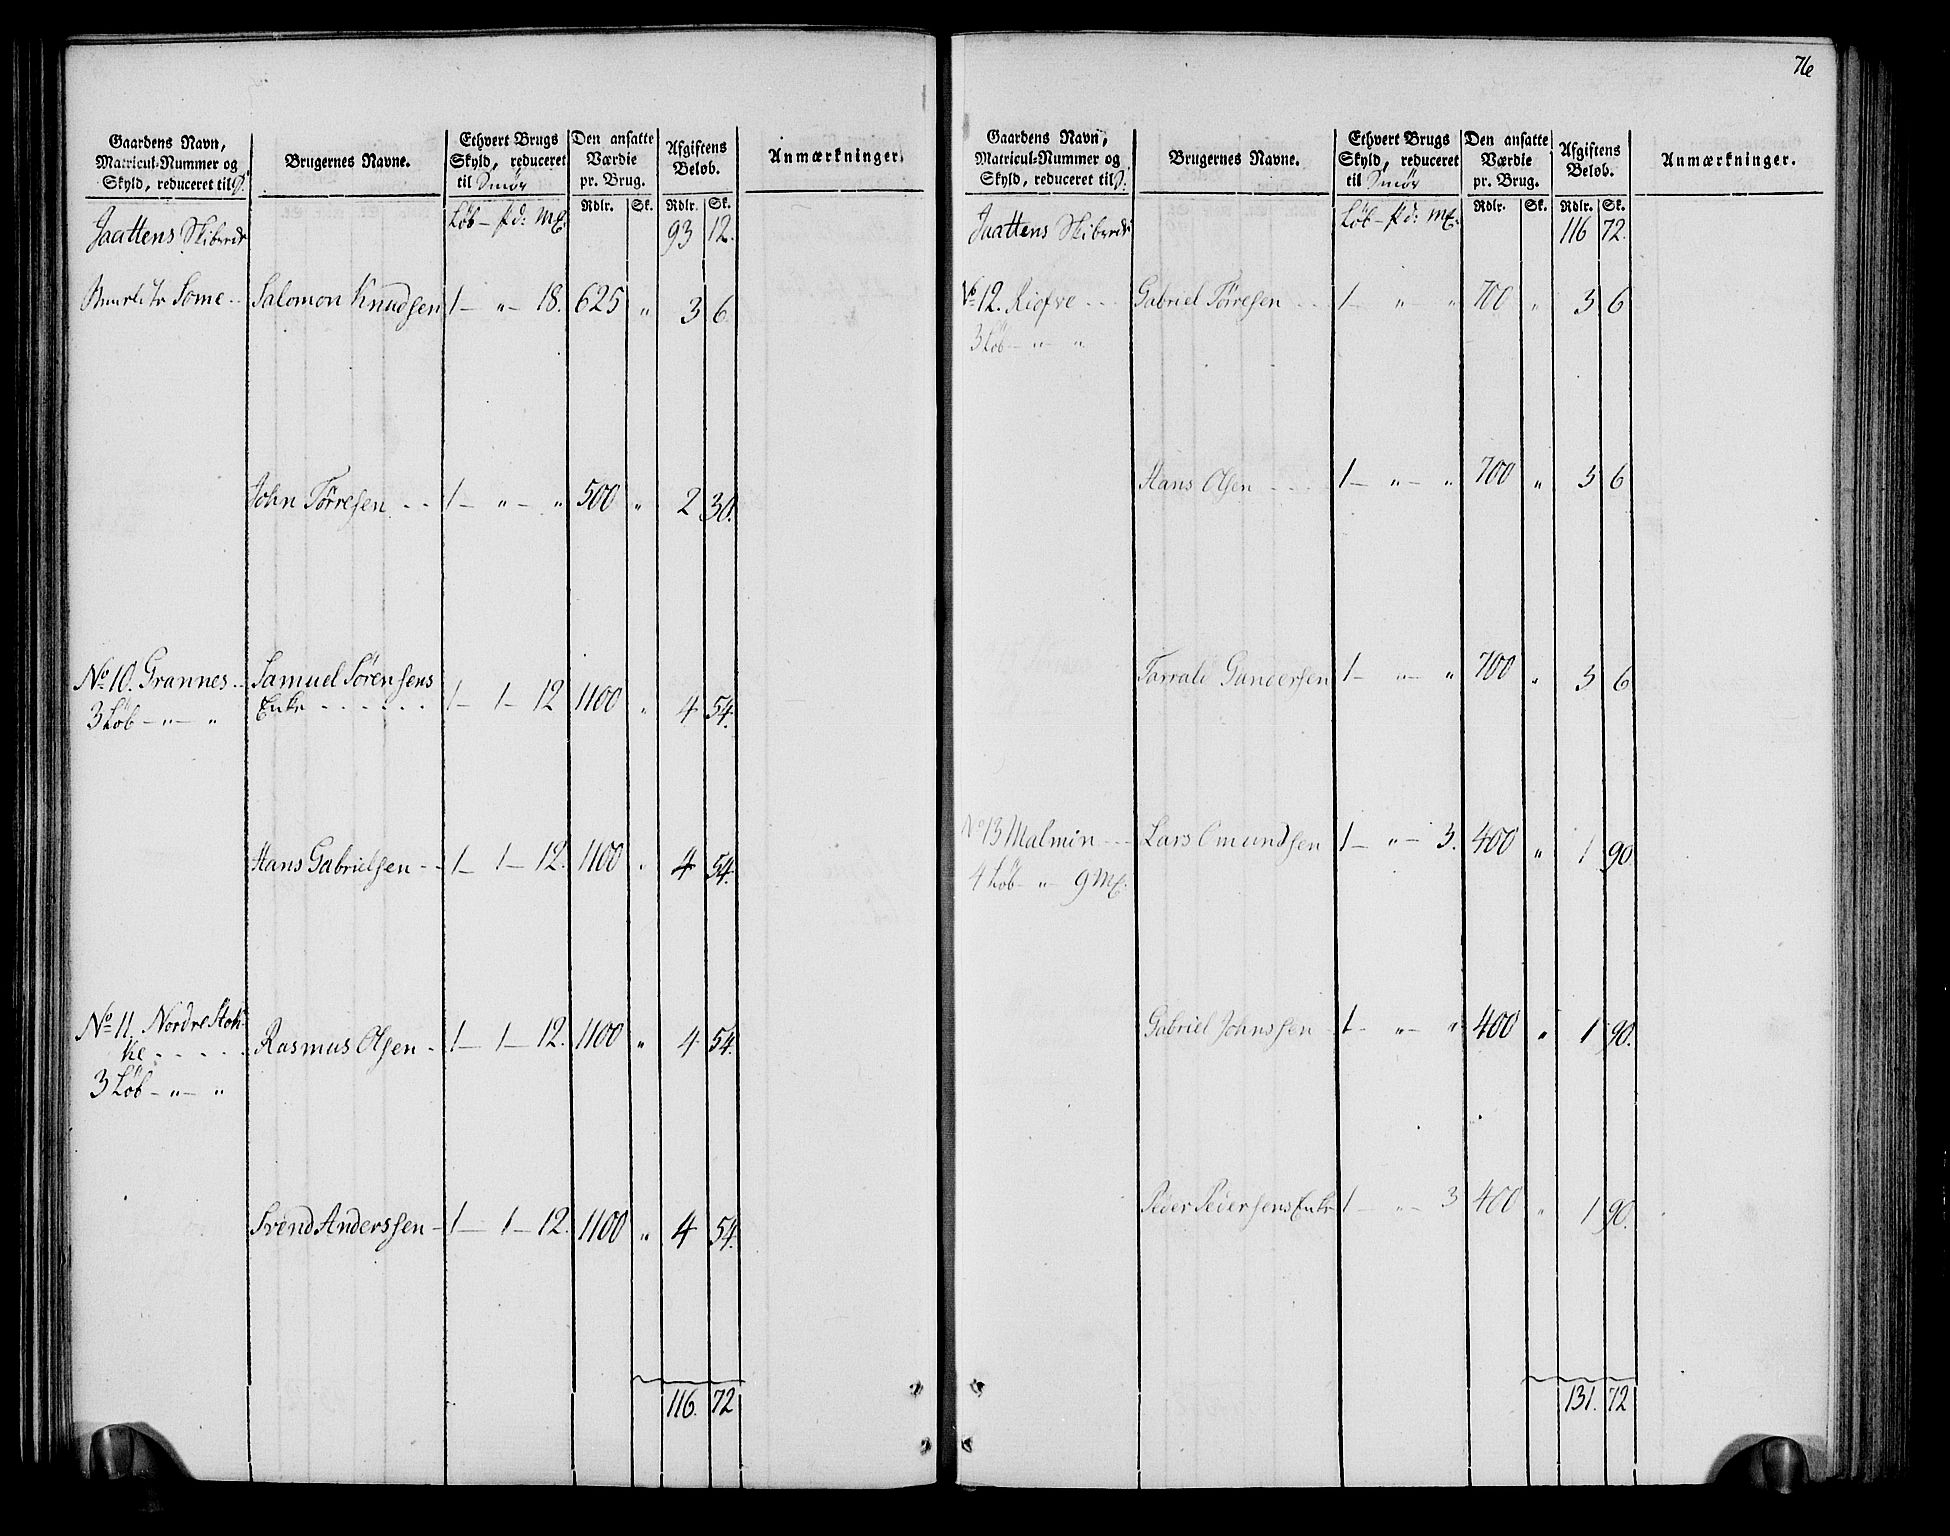 76
Gaardens Navn, Matricul-Nummer og Skyld, reduceret til
Brugernes Navne.
Ethvert Brugs Skyld, reduceret til Smør
Den ansatte Værdie pr. Brug.
Afgiftens Beløb.
Anmærkninger.
Rdlr. Sk. Rdlr. Sk.
Jaattens Skibrede Løb – pd: mk. 93 12.
Some Salomon Knudsen 1 – " – 18. 625 " 3 6
John Tørresen 1 – " – " 500 " 2 30.
No 10. Grannes Samuel Sørensens Enke 1 – 1 – 12 1100 " 4 54.
3 Løb – " – "
Hans Gabrielsen 1 – 1 – 12. 1100 " 4 54.
No 11. Nordre Stokke Rasmus Olsen 1 – 1 – 12. 1100 " 4 54.
3 Løb – " – "
Svend Anderssen 1 – 1 – 12. 1100 " 4 54.
116. 72
Gaardens Navn, Matricul-Nummer og Skyld, reduceret til
Brugernes Navne.
Ethvert Brugs Skyld, reduceret til Smør
Den ansatte Værdie pr. Brug.
Afgiftens Beløb.
Anmærkninger.
Rdlr. Sk. Rdlr. Sk.
Jaattens Skibrede Løb – pd: mk. 116 72.
No 12. Riofve Gabriel Tørresen 1 – " " 700 " 3 6
3 Løb – " – "
Hans Olsen 1 – " – " 700 " 3 6
Torrald Gundersen 1 – " – " 700 " 3 6
No 13 Malmin Lars Omundsen 1 – " – 3. 400 " 1 90
4 Løb – " – 9 mk.
Gabriel Johnssen 1 – " – " 400 " 1 90.
Peder Pedersens Enke 1 – " – 3 400 " 1 90.
131. 72